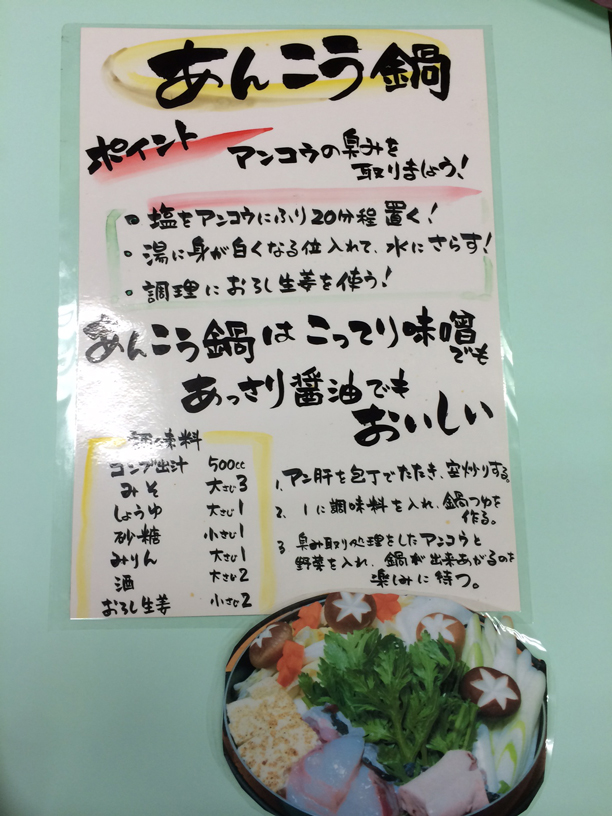 あんこう鍋
ポイント
アンコウの臭みを
取りましょう！
・塩をアンコウにふり20分程置く！
・湯に身が白くなる位入れて、水にさらす！
・調理におろし生姜を使う！
あんこう鍋はこってり味噌
でも
あっさり醤油でも
おいしい
調味料
コンブ出汁 500cc
みそ 大さじ3
しょうゆ 大さじ1
砂糖 小さじ1
みりん 大さじ1
酒 大さじ2
おろし生姜 小さじ2
1. アン肝を包丁でたたき、空炒りする。
2. 1に調味料を入れ、鍋つゆを
作る。
3. 臭み取り処理をしたアンコウと
野菜を入れ、鍋が出来あがるのを
楽しみに待つ。